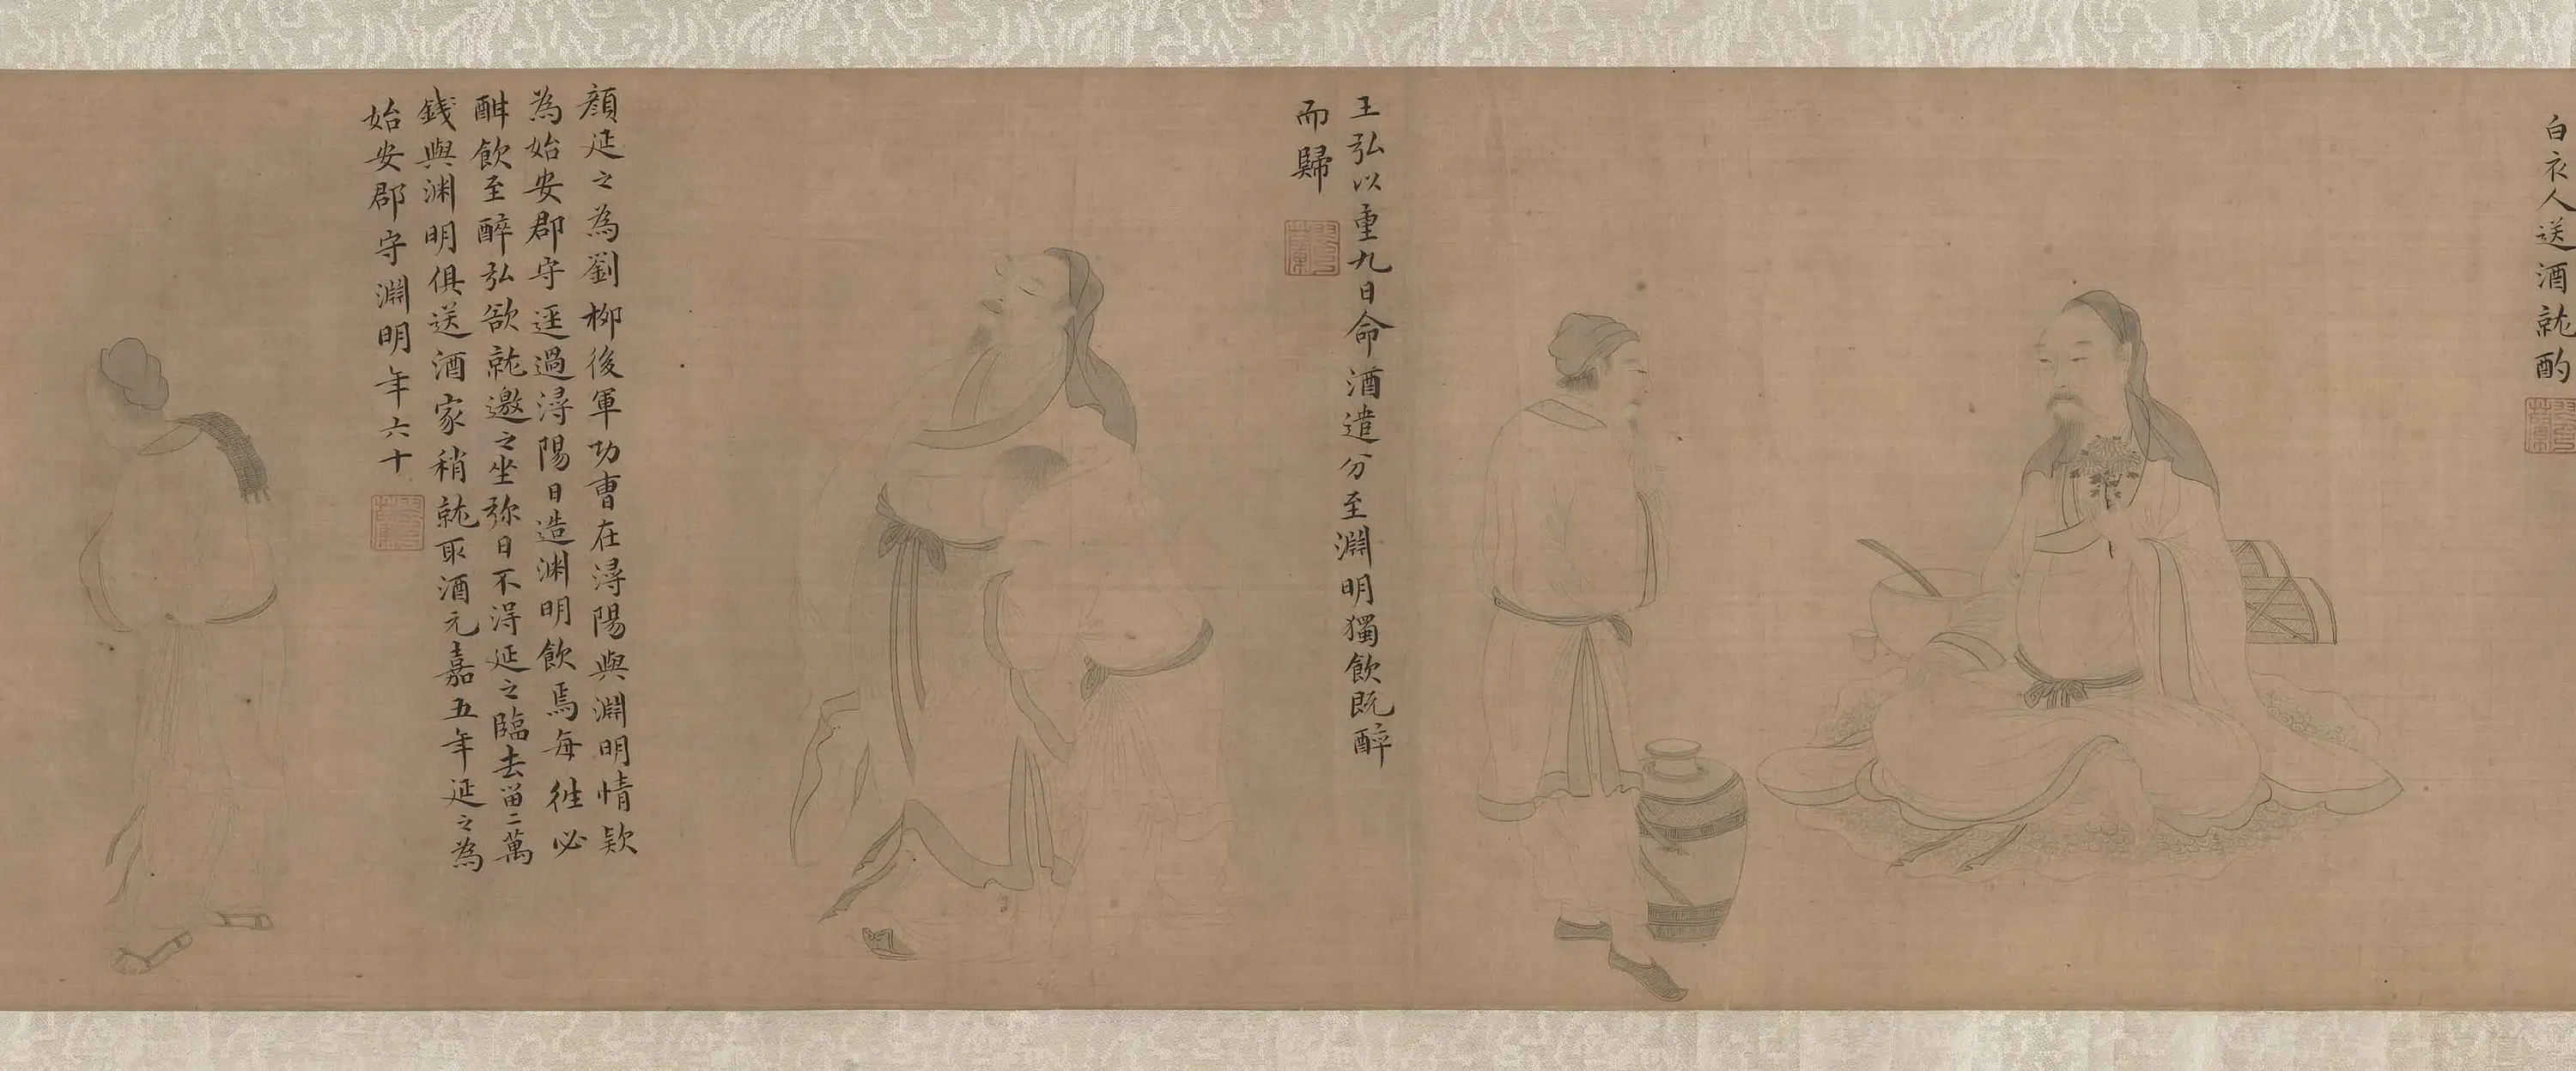 白衣人送酒就酌
王弘以重九日命酒遣分至淵明獨飲既醉
而歸
顏延之為劉柳後軍功曹在潯陽與淵明情欵
為始安郡守逕過潯陽日造渊明飲焉每往必
酣飲至醉弘欲就邀之坐弥日不淂延之臨去留二萬
錢與渊明俱送酒家稍就取酒元嘉五年延之為
始安郡守淵明年六十